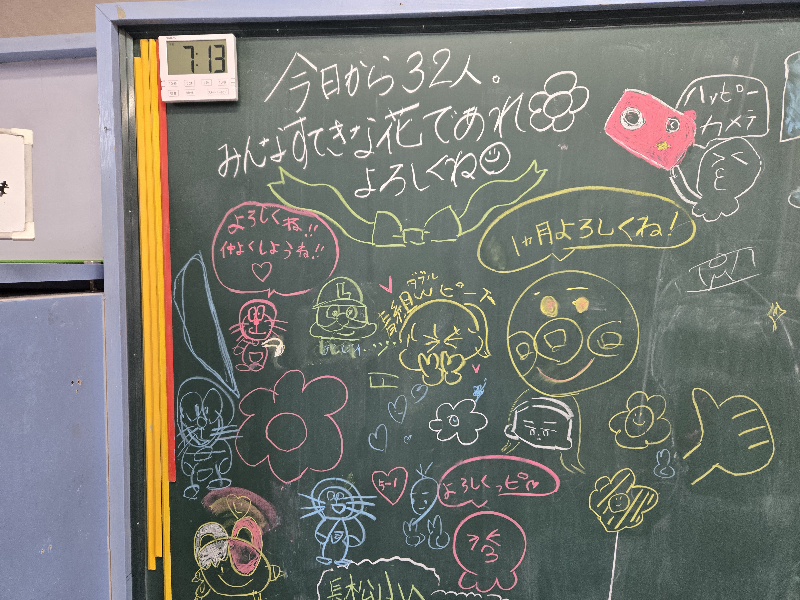 7:13
今日から32人。
みんなすてきな花であれ
よろしくね
ハッピー
カメラ
よろしくね!!
仲よくしようね!!
1ヵ月よろしくね!
L
ダブル
ピース
5-1
よろしくっピ
長松小